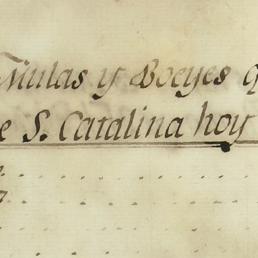 Mulas y Boeyes q
e S. Catalina hoy